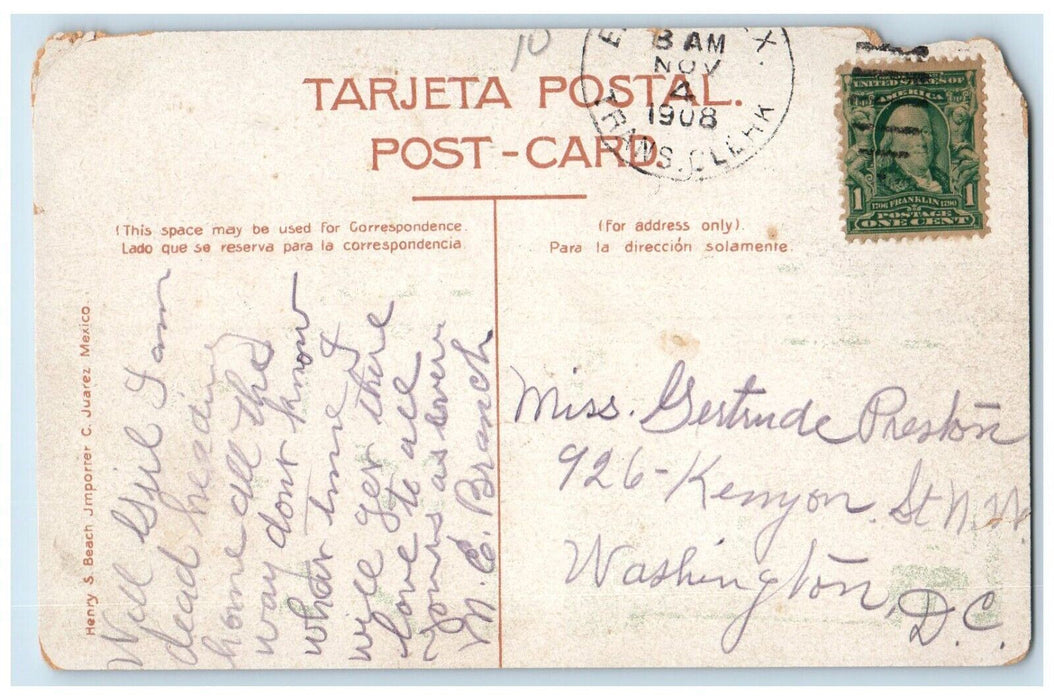 10
8 AM
NOV
4
1908
TRANS. CLERK
TARJETA POSTAL.
POST-CARD.
UNITED STATES OF
AMERICA
1 1
1706 FRANKLIN 1790
POSTAGE
ONE CENT
(This space may be used for Correspondence.
Lado que se reserva para la correspondencia.
(For address only).
Para la dirección solamente.
Henry S. Beach Importer C. Juarez Mexico.
Well Girl I am
dead heading
home all the
way dont know
what time I
will get there
love to all
yours as ever
M. E. Branch
Miss. Gertrude Preston
926 - Kenyon St N.W.
Washington,
D.C.